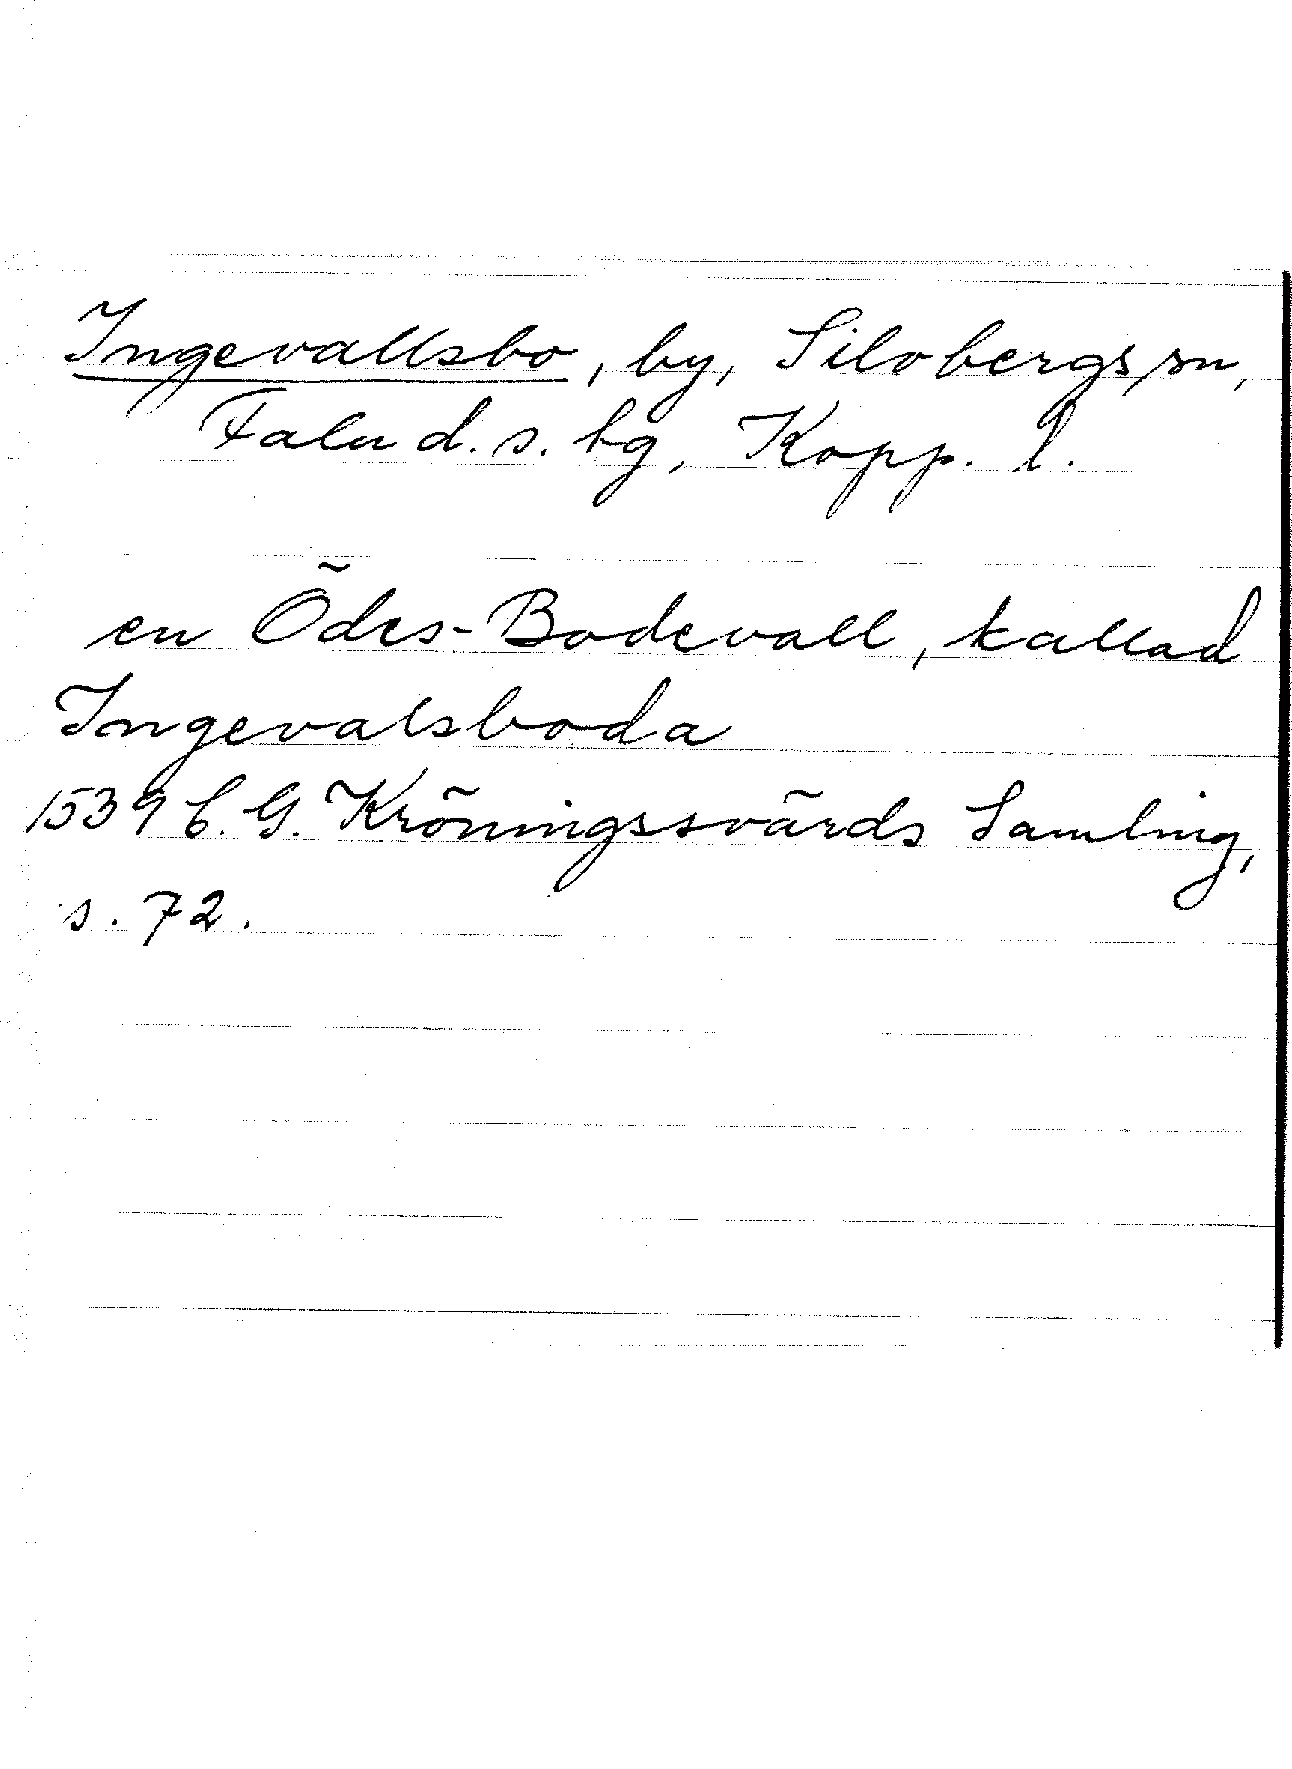 Ingevallsbo, by, Silvbergs sn,
Falu d. s. bg, Kopp. l.
en Ödes-Bodevall, kallad
Ingevalsboda
1539 C. G. Kröningssvärds Samling,
s. 72.